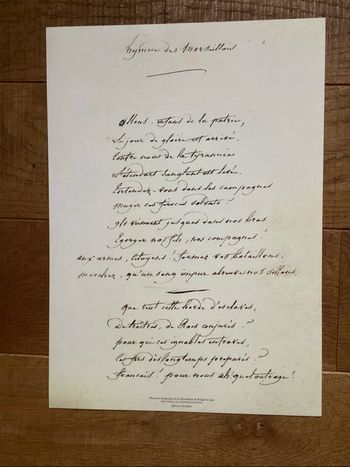 hymne des marseillois
Allons, enfans de la patrie,
Le jour de gloire est arrivé.
Contre nous de la tyrannie
L'étendart sanglant est levé.
Entendez-vous dans les campagnes
Mugir ces féroces soldats ?
ils viennent jusques dans nos bras
Egorger nos fils, nos compagnes !
aux armes, Citoyens ! formez vos bataillons :
marchez, qu'un sang impur abreuve nos sillons.
que veut cette horde d'esclaves,
De traitres, de Rois conjurés ?
pour qui ces ignobles entraves,
Ces fers dès longtemps préparés ?
français ! pour nous ah ! quel outrage !